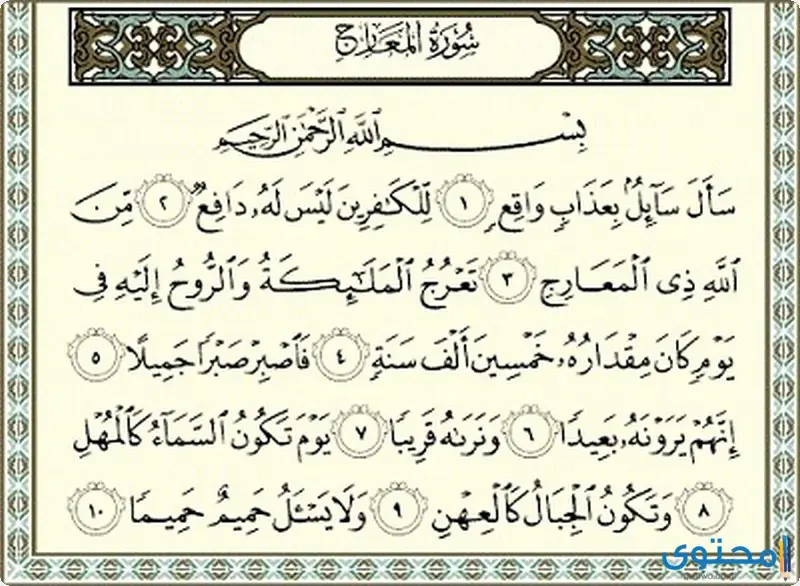 سُورَةُ المَعَارِجِ
بِسْمِ اللَّهِ الرَّحْمَٰنِ الرَّحِيمِ
سَأَلَ سَآئِلُۢ بِعَذَابٖ وَاقِعٖ ١ لِّلۡكَٰفِرِينَ لَيۡسَ لَهُۥ دَافِعٞ ٢ مِّنَ
ٱللَّهِ ذِي ٱلۡمَعَارِجِ ٣ تَعۡرُجُ ٱلۡمَلَٰٓئِكَةُ وَٱلرُّوحُ إِلَيۡهِ فِي
يَوۡمٖ كَانَ مِقۡدَارُهُۥ خَمۡسِينَ أَلۡفَ سَنَةٖ ٤ فَٱصۡبِرۡ صَبۡرٗا جَمِيلًا ٥
إِنَّهُمۡ يَرَوۡنَهُۥ بَعِيدٗا ٦ وَنَرَىٰهُ قَرِيبٗا ٧ يَوۡمَ تَكُونُ ٱلسَّمَآءُ كَٱلۡمُهۡلِ
٨ وَتَكُونُ ٱلۡجِبَالُ كَٱلۡعِهۡنِ ٩ وَلَا يَسۡـَٔلُ حَمِيمٌ حَمِيمٗا ١٠
محتوى